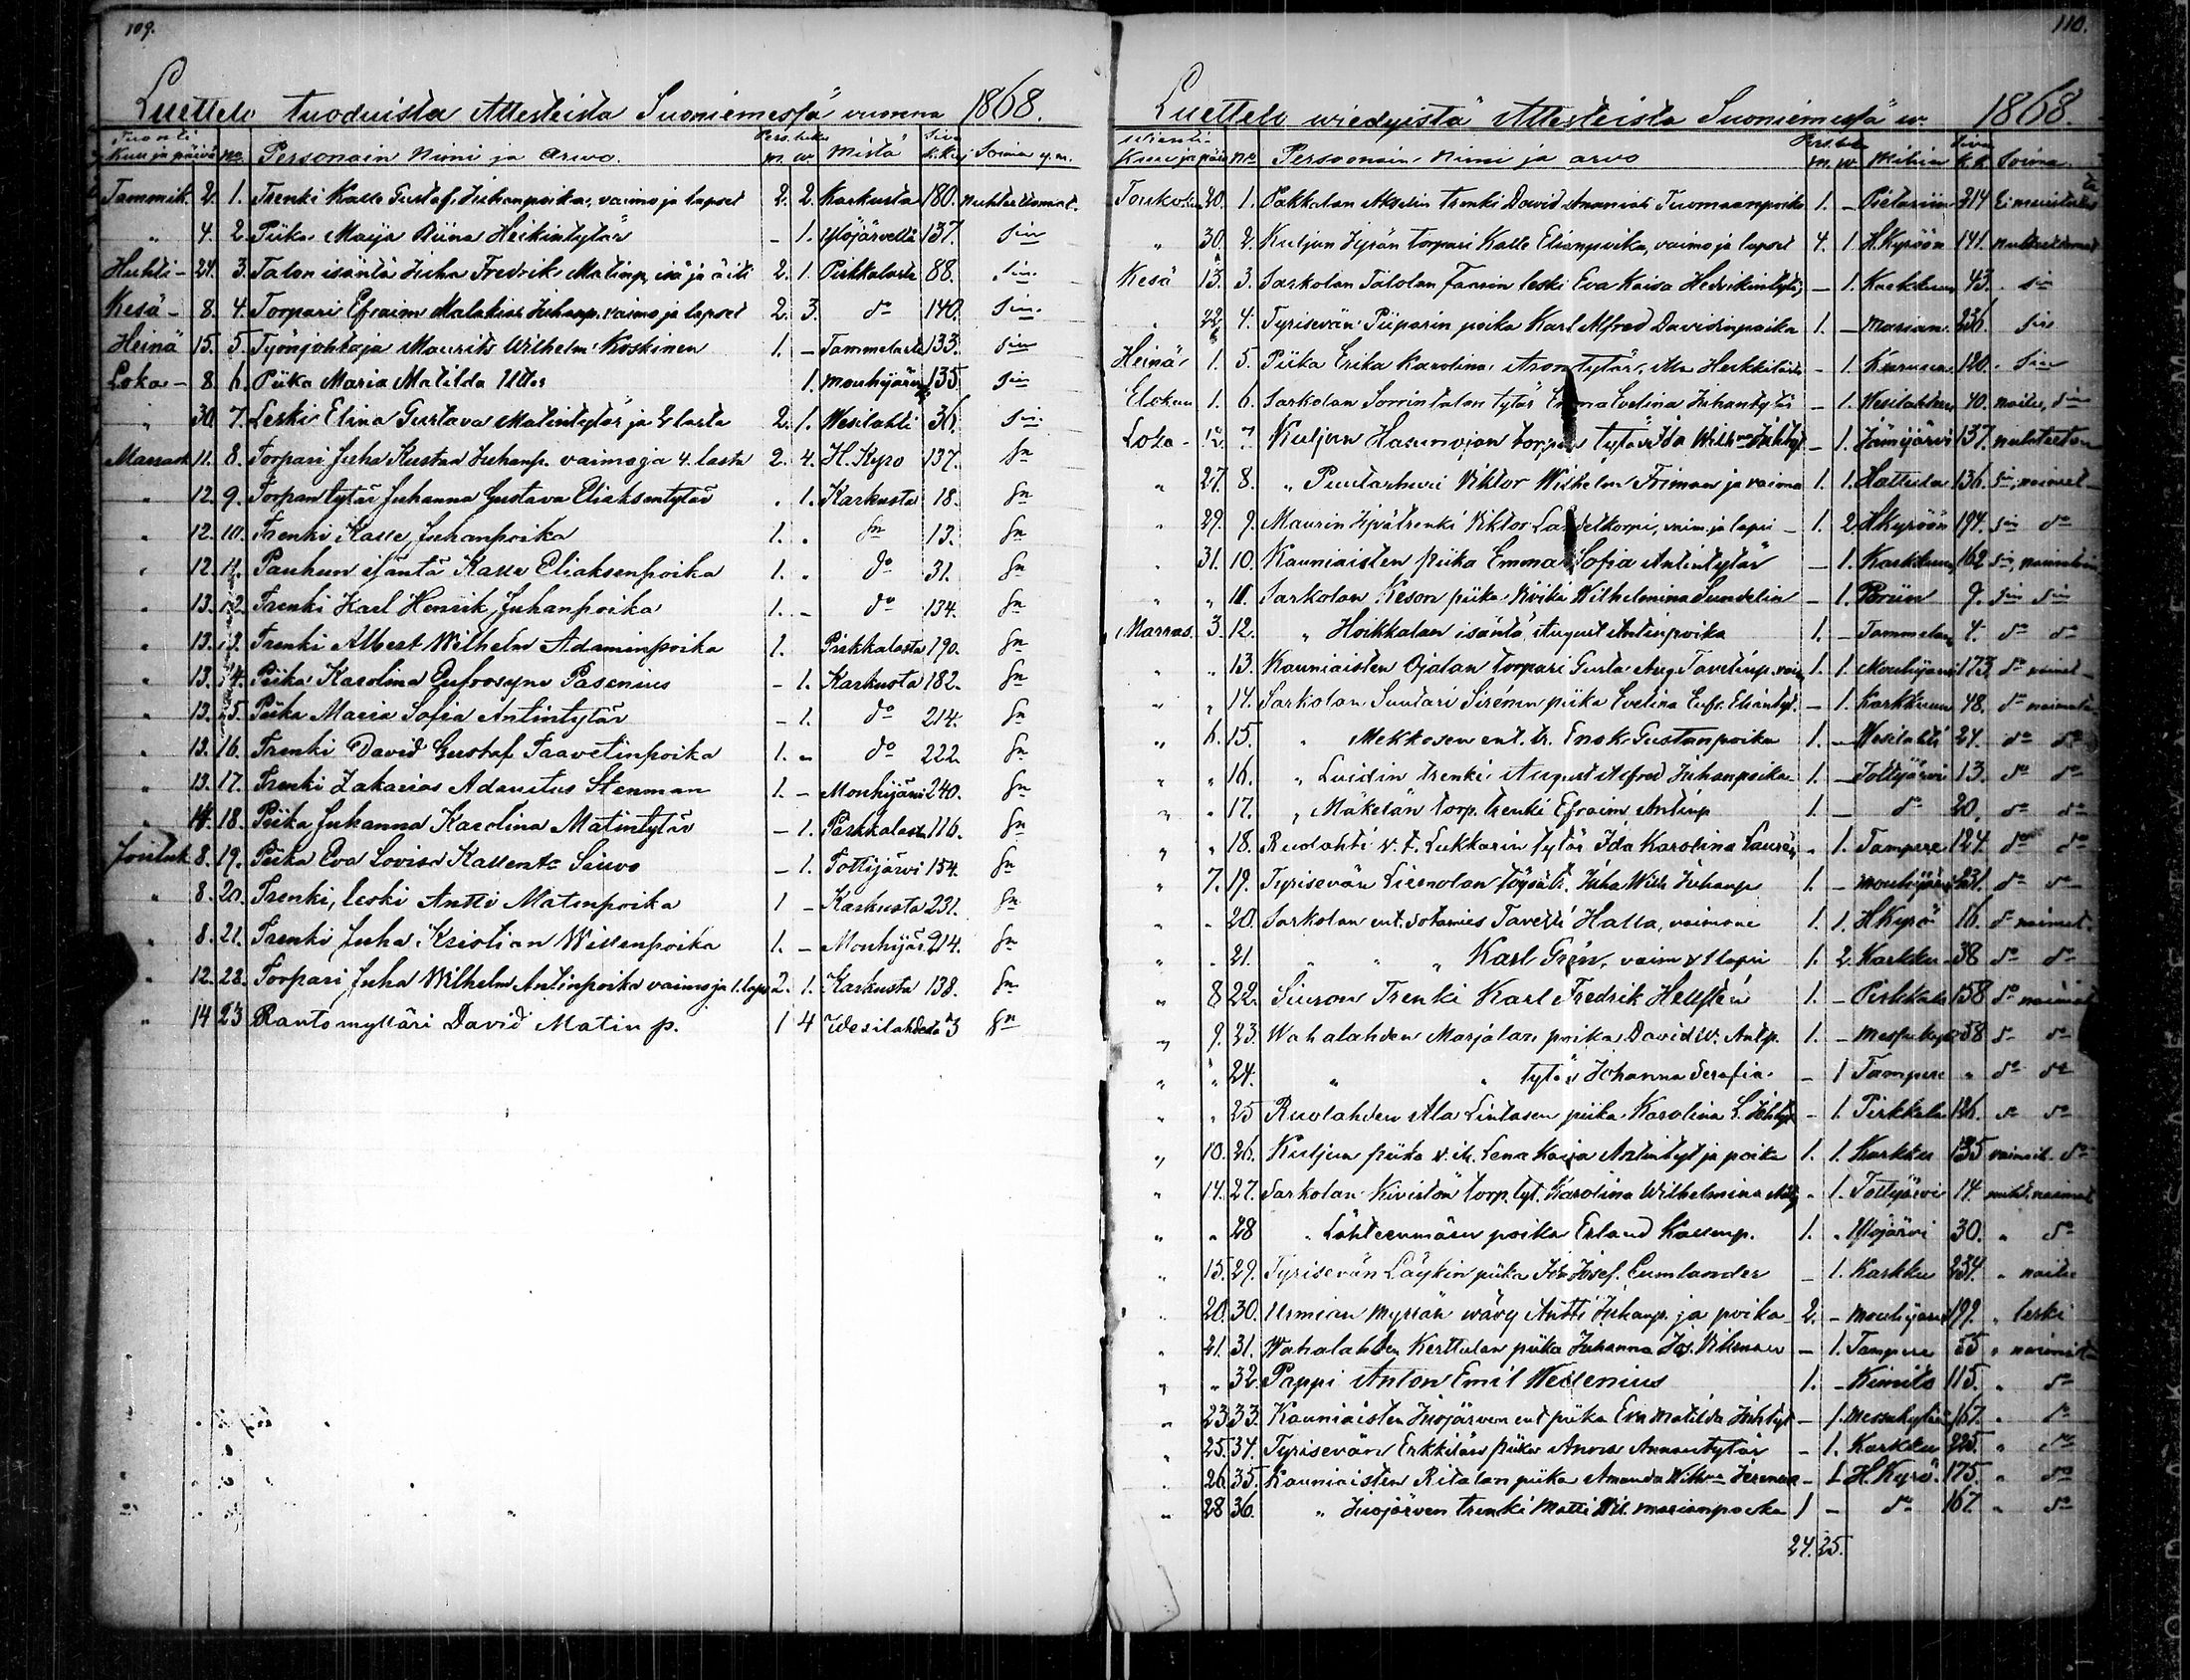 109.
Luettelo tuoduista Attesteista Suoniemessä vuonna 1868.
Tuonti Kuu ja päivä No. Personain Nimi ja arwo. Pers. luku m. w. Mistä Siva k.k. Soimia y.m.
Tammik. 2. 1. Trenki Kalle Gustaf Juhanpoika, vaimo ja lapset 2. 2. Karkusta 180. nuhteettomat.
" 4. 2. Piika Maija Stiina Heikintytär - 1. Ylöjärveltä 137. sin
Huhti- 24. 3. Talon isäntä Juha Fredrik Matinp. isä ja äiti 2. 1. Pirkkalasta 88. sin
Kesä- 8. 4. Torpari Efraim Malakias Juhanp. vaimo ja lapset 2. 3. do 140. sin.
Heinä 15. 5. Työnjohtaja Maurits Wilhelm Koskinen 1. - Tammelasta 133. sin
Loka- 8. 6. Piika Maria Matilda 1. Mouhijärv. 135. sin
" 30. 7. Leski Elina Gustava Matintytär ja 2 lasta 2. 1. Wesilahti 36. sin
Marrask 11. 8. Torpari Juha Kustaa Juhanp. vaimo ja 4. lasta 2. 4. H. Kyro 137. sn
" 12. 9. Torpan tytär Juhanna Gustava Eliaksentytär . 1. Karkusta 18. sn
" 12. 10. Trenki Kalle Juhanpoika 1. . sn 13. sn
" 12. 11. Pauhun isäntä Kalle Eliaksenpoika 1. . do 31. sn
" 13. 12. Trenki Karl Henrik Juhanpoika 1. - do 134. sn
" 13. 13. Trenki Albert Wilhelm Adaminpoika 1. Pirkkalasta 190. sn
" 13. 14. Piika Karolina Eufrosyne Pasenius - 1. Karkusta 182. sn
" 13. 15. Piika Maria Sofia Antintytär - 1. do 214. sn
" 13. 16. Trenki David Gustaf Taavetinpoika 1. - do 222. sn
" 13. 17. Trenki Zakarias Adamitus Stenman 1. - Mouhijärvi 240. sn
" 14. 18. Piika Juhanna Karolina Matintytär - 1. Pirkkalast 116. sn
Jouluk 8. 19. Piika Eva Lovisa Kallent. Siuvo - 1. Tottijärvi 154. sn
" 8. 20. Trenki, leski Antti Matinpoika 1 - Karkusta 231. sn
" 8. 21. Trenki Juha Kristian Willenpoika 1. - Mouhijär. 214. sn
" 12. 22. Torpari Juha Wilhelm Antinpoika vaimo ja 1. laps 2. 1. Karkusta 138. sn
" 14 23 Rantomylläri David Matin p. 1 4 Wesilahdesta 3 sn
110.
Luettelo wiedyistä Attesteista Suoniemessä w. 1868.
Wienti Kuu ja päivä No Personain Nimi ja arvo Pers. luku m. w. Mihin Siva k.k. Soima
Toukokuu 20. 1. Pakkalan trenki David Ananias Tuomaanpoika 1. - Pietariin 214
" 30. 2. Kuljun torpari Kalle Eliaanpoika, vaimo ja lapset 4. 1. H.Kyröön 141. nuhteettomat
Kesä 13. 3. Sarkolan Talolan leski Eva Kaisa Hedrikintytär - 1. Karkkuun 43. sin
" 22. 4. Tyrisevän Piiparin poika Karl Alfred Davidinpoika 1. - 236. sin
Heinä 1. 5. Piika Erika Karolina Arontytär, Ala Heikkilästä - 1. 120. sin
Elokuu 1. 6. Sarkolan Sorrin talon tytär Emma Evelina Juhantytär - 1. Wesilahteen 40. naitu, sin
Loka- 12. 7. Kuljun Hasunojan torpan tytär Ida Wilhna Juhtyt - 1. Jämijärvi 137. nuhteeton
" 27. 8. " Puutarhuri Viktor Wilhelm Friman ja vaimo 1. 1. Hattula 136. sin, naineet
" 29. 9. Maurin trenki Viktor vaim. ja lapsi 1. 2. H.Kyröön 194. sin do
" 31. 10. Kauniaisten piika Emma Sofia Antintytär - 1. Karkkuun 162 sin,
" " 11. Sarkolan Keson piika Wilhelmina Sundelin - 1. Poriin 9. sin sin
Marras. 3. 12. " Hoikkalan isäntä August Antinpoika 1. - Tammelan 4. do do
" " 13. Kauniaisten Ojalan torpari Gusta Aug. Tavetinp. 1. 1. Mouhijärvi 173. do nainet
" " 14. Sarkolan Suutari Sirénin piika Evelina Eufr. Eliantyt. - 1. Karkkuun 48. do naimat.
" 6. 15. " Mekkosen ent. tr. Enok Gustanpoika 1. - Wesilahti 24. do do
" " 16. " Luidin trenki August Alfred Juhanpoika 1. - Tottijärvi 13. do do
" " 17. " Mäkelän torp. trenki Efraim Antinp 1. - do 20. do do
" " 18. Ruolahti v.t. Lukkarin tytär Ida Karolina Laurén - 1. Tampere 124. do do
" 7. 19. Tyrisevän Juha Wilh. Juhanp 1. - Mouhijärvi 231. do do
" " 20. Sarkolan ent. sotamies Tavetti Halla, vaimone 1. 1. H.Kyrö 16. do naimat.
" " 21. " " " Karl Grén, vaim & 1 lapsi 1. 2. Karkku 38 do do
" 8 22. Siuron Trenki Karl Fredrik Hellstén 1. - Pirkkala 158 do naimat
" 9. 23. Wahalahden Marjalan poika David W. Antp. 1. - Messukylä 258 do do
" " 24. " " tytär Johanna Serafia. - 1 Tampere " do do
" " 25 Ruolahden Ala Lintasen piika Karolina L. Juhtyt - 1. Pirkkala 126. do do
" 10. 26. Kuljun piika Lena Kaisa Antintyt ja poika 1. 1. Karkku 135 do
" 14. 27. Sarkolan Kivistön torp. tyt. Karolina Wilhelmina - 1. Tottijärvi 14 nuht. naimat
" " 28 " Lähteenmäen poika Erland Kallenp. 1. - Ylöjärvi 30. " do
" 15. 29. Tyrisevän Läykin piika Josef. Cumlander - 1. Karkku 234. " naitu
" 20. 30. Urmian Myllän wävy Antti Juhanp. ja poika 2. - Mouhijärvi 199. " leski
" 21. 31. Wahalahden Kerttulan piika Juhanna Jos. Vikman - 1. Tampere 55 " naimat
" " 32. Pappi Anton Emil Wellenius 1. - Kimito 115. " do
" 23 33. Kauniaisten Isojärven ent piika Eva Matilda Juhtyt - 1. Messukylään 167. " do
" 25. 34. Tyrisevän Erkkilän piika Anna Amaantytär - 1. Karkku 225. " do
" 26. 35. Kauniaisten Ritalan piika Amanda Wilhna - 1 H. Kyrö. 175. " do
" 28 36. " Isojärven trenki Matti Vil. Marianpoika 1 - do 167. " do
24. 25.